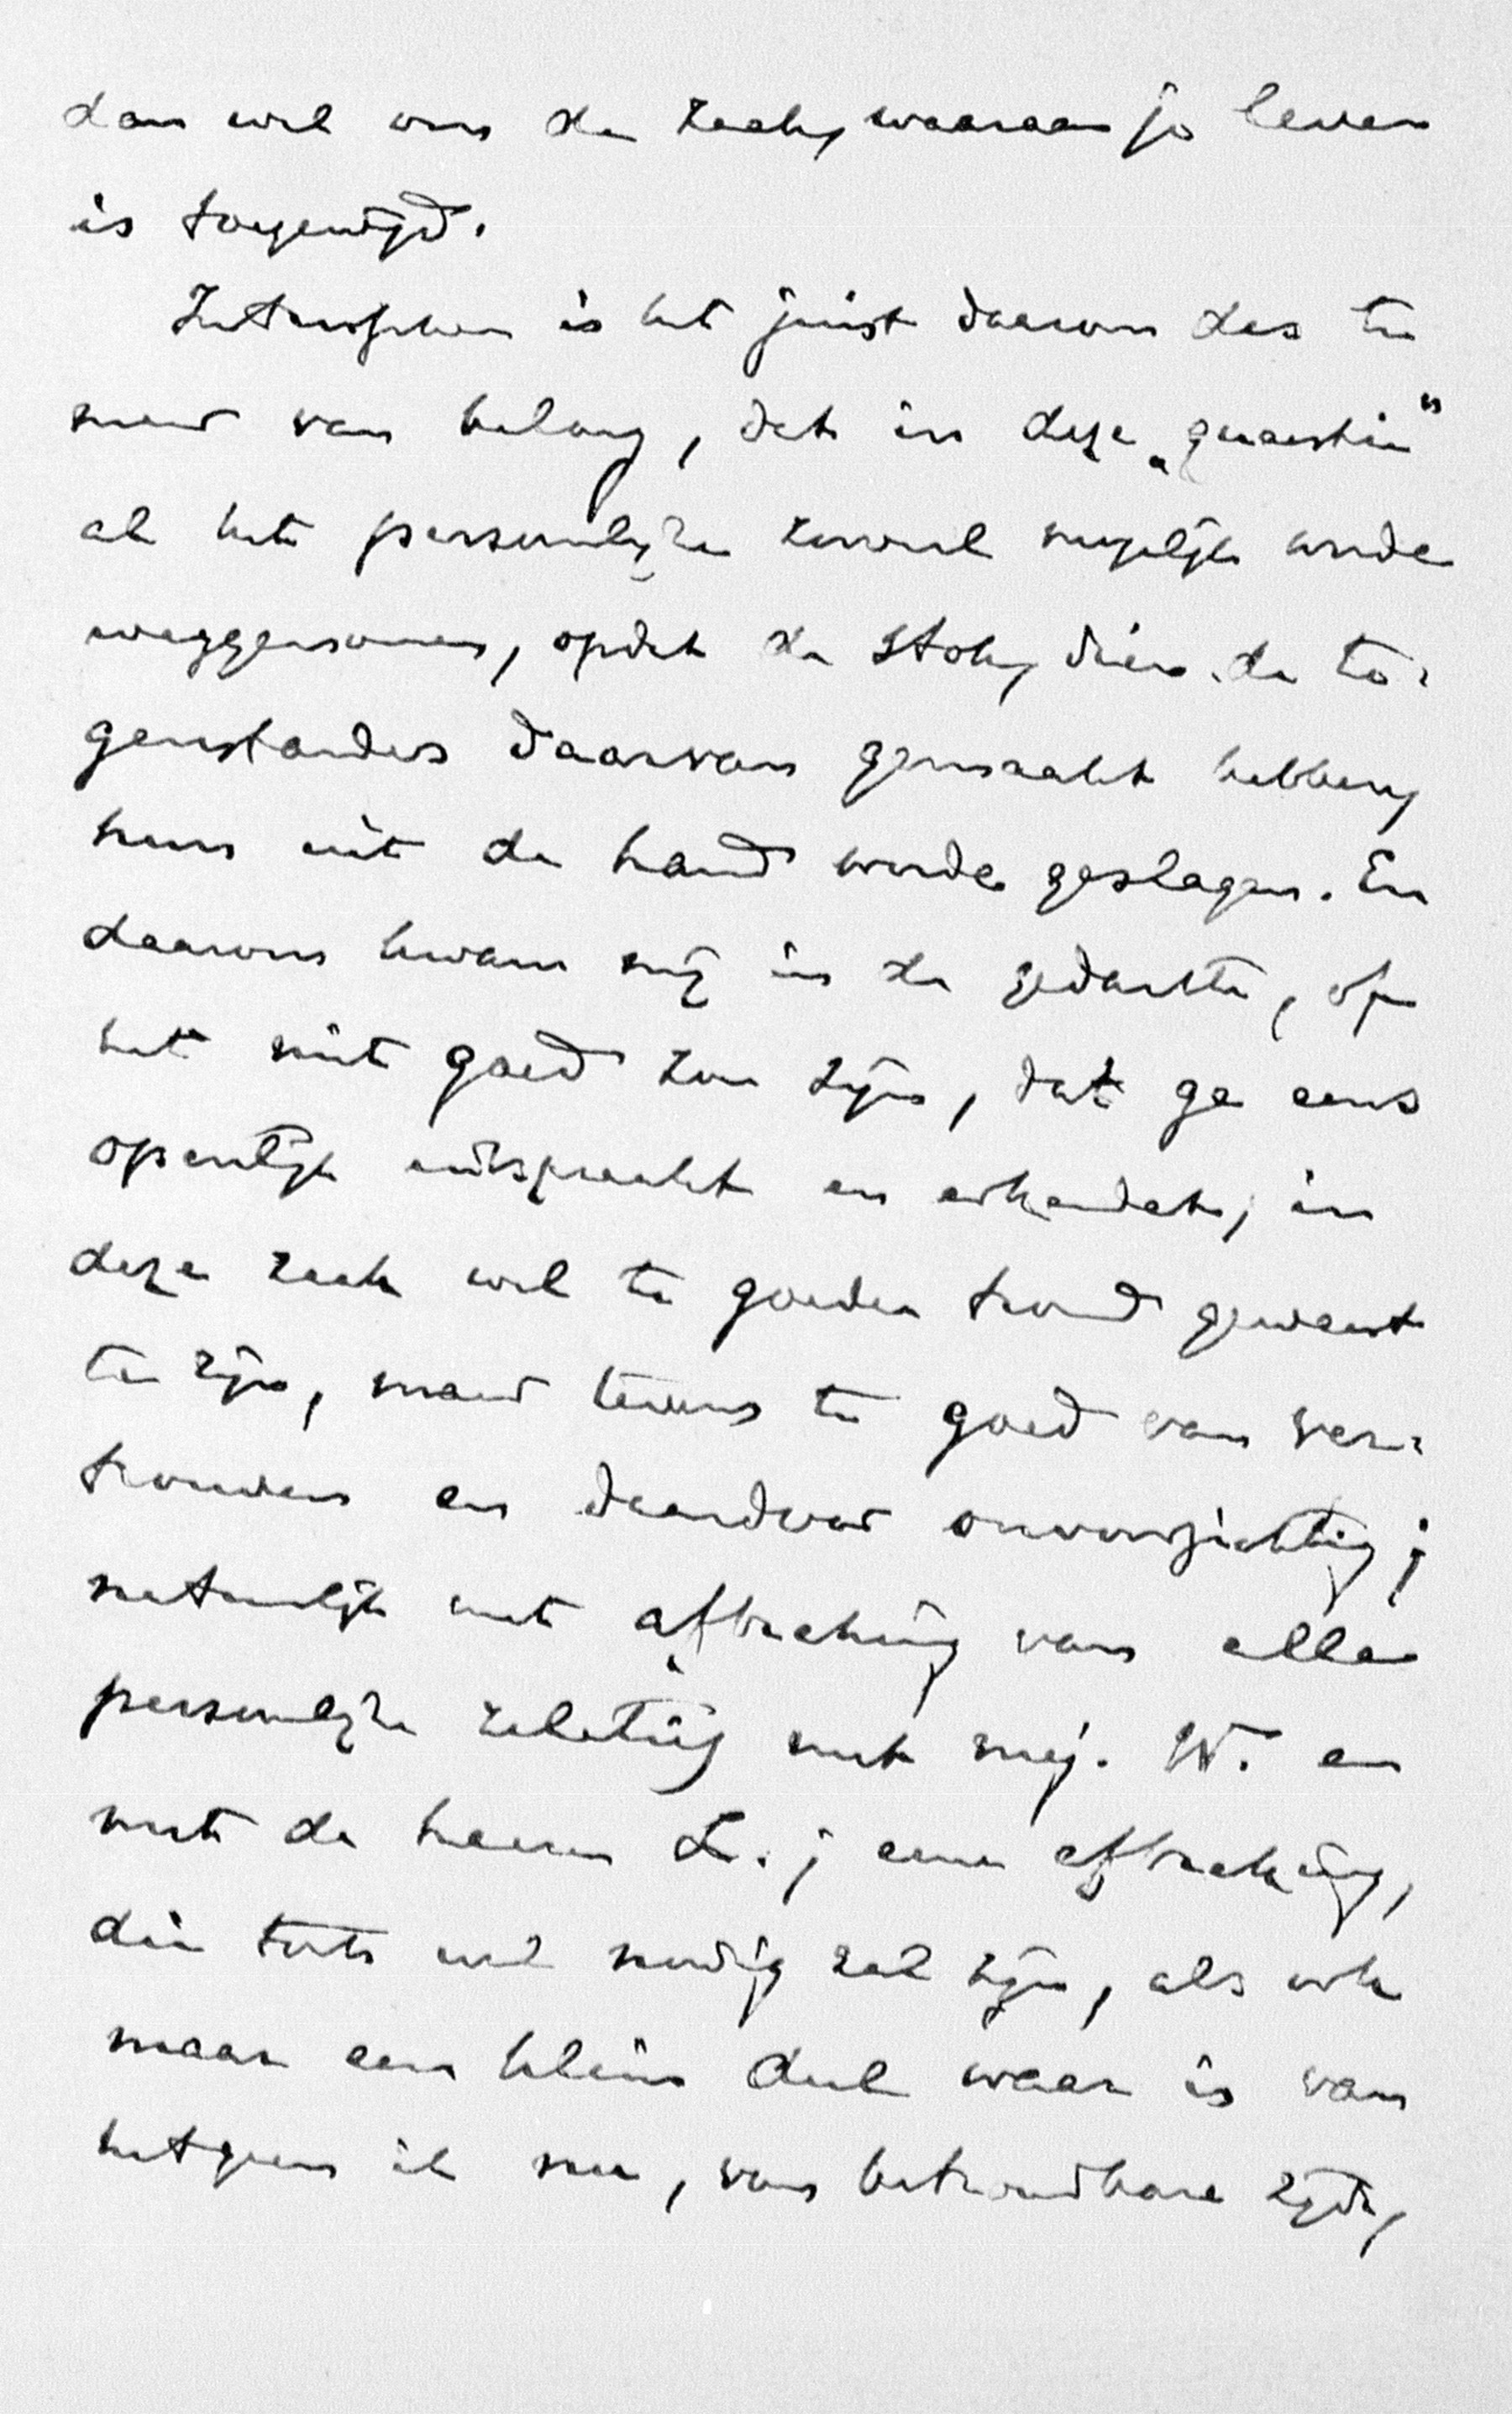 dan wel om de zaak, waaraan je leven
is toegewijd.
Intusschen is het juist daarom des te
meer van belang, dat in deze „quaestie"
al het persoonlijke zooveel mogelijk worde
weggenomen, opdat de stok, dien de te-
genstanders daarvan gemaakt hebben,
hun uit de hand worde geslagen. En
daarom kwam mij in de gedachte, of
het niet goed zou zijn, dat ge eens
openlijk uitspraakt en erkendet, in
deze zaak wel te goeder trouw geweest
te zijn, maar tevens te goed van ver-
trouwen en daardoor onvoorzichtig;
natuurlijk met afbreking van alle
persoonlijke relatiën met mej. W. en
met de heeren L.; eene afbreking,
die toch wel noodig zal zijn, als ook
maar een klein deel waar is van
hetgeen ik nu, van betrouwbare zijde,